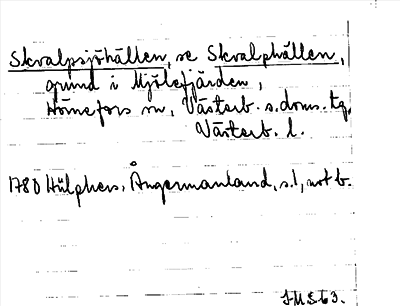 Skvalpsjöhällen, se Skvalphällen,
grund i Mjölefjärden,
Hörnefors sn, Västerb. s. doms. tg,
Västerb. l.
1780 Hülphers, Ångermanland, s. 1, not b.